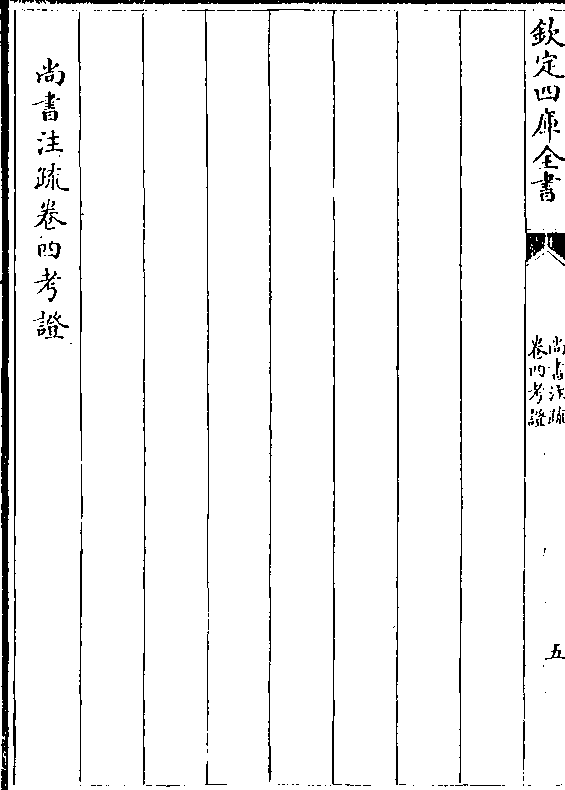 欽定四庫全書
尚書注疏
卷四考證
五
尚書注疏卷四考證